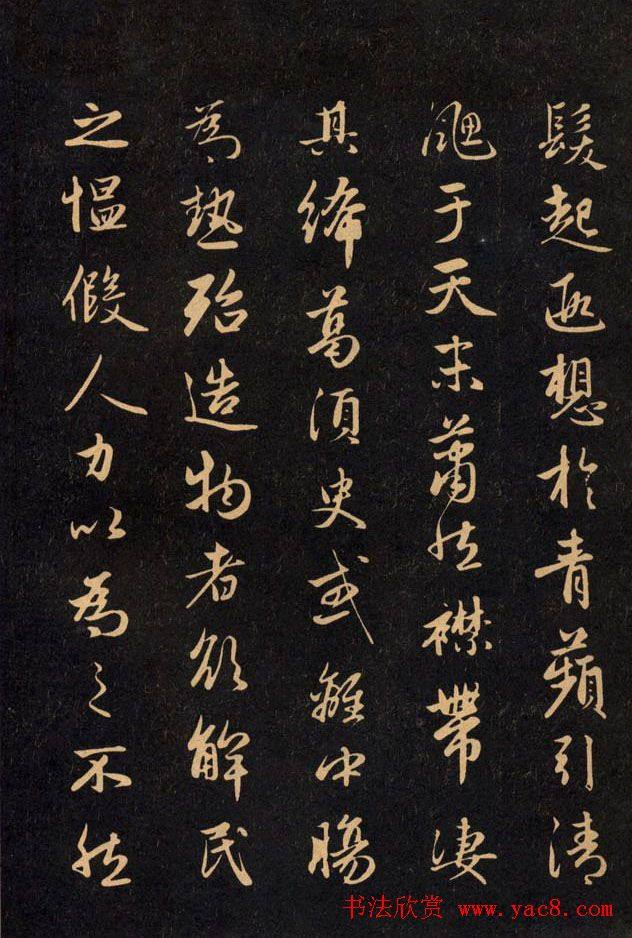 髮起遐想於青蘋引清
颸于天末蕭然襟帶凄
其絺葛須臾或離中腸
為熱殆造物者欲解民
之愠假人力以為之不然
书法欣赏 www.yac8.com